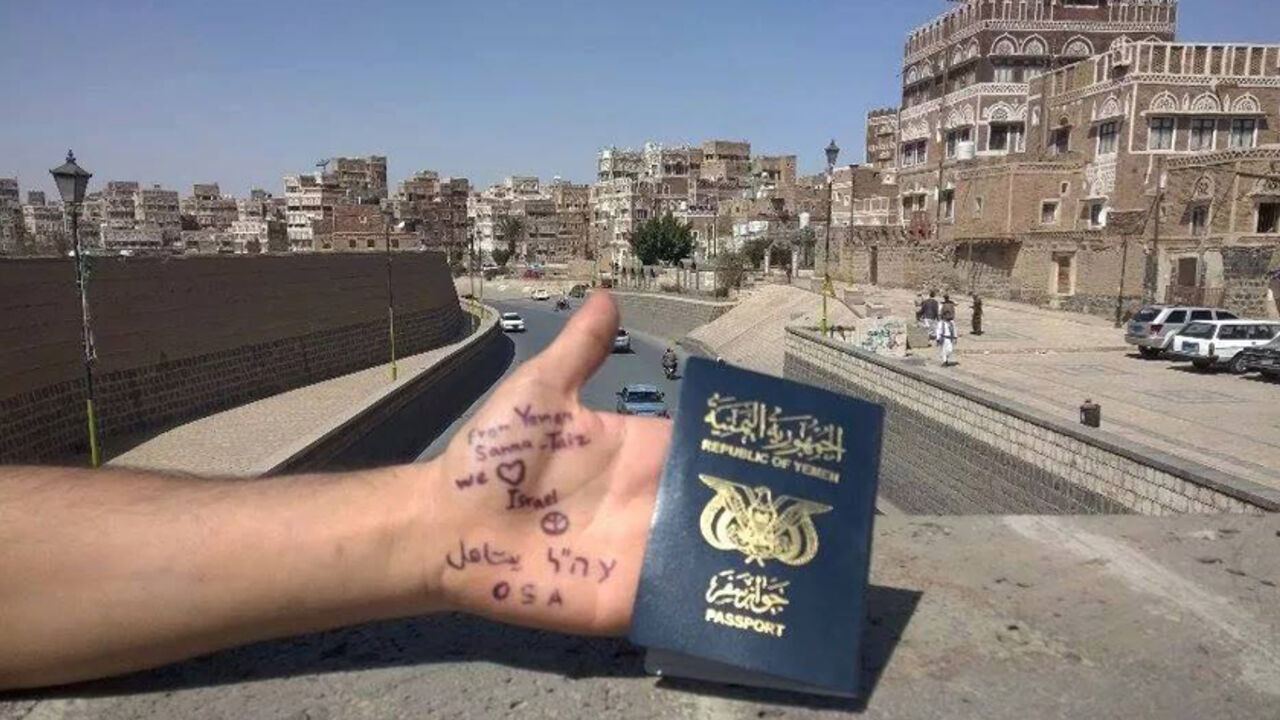 from Yemen
Sanaa - Taiz
we ♡
Israel
☮
צה"ל
OSA
الجمهورية اليمنية
REPUBLIC OF YEMEN
جواز سفر
PASSPORT